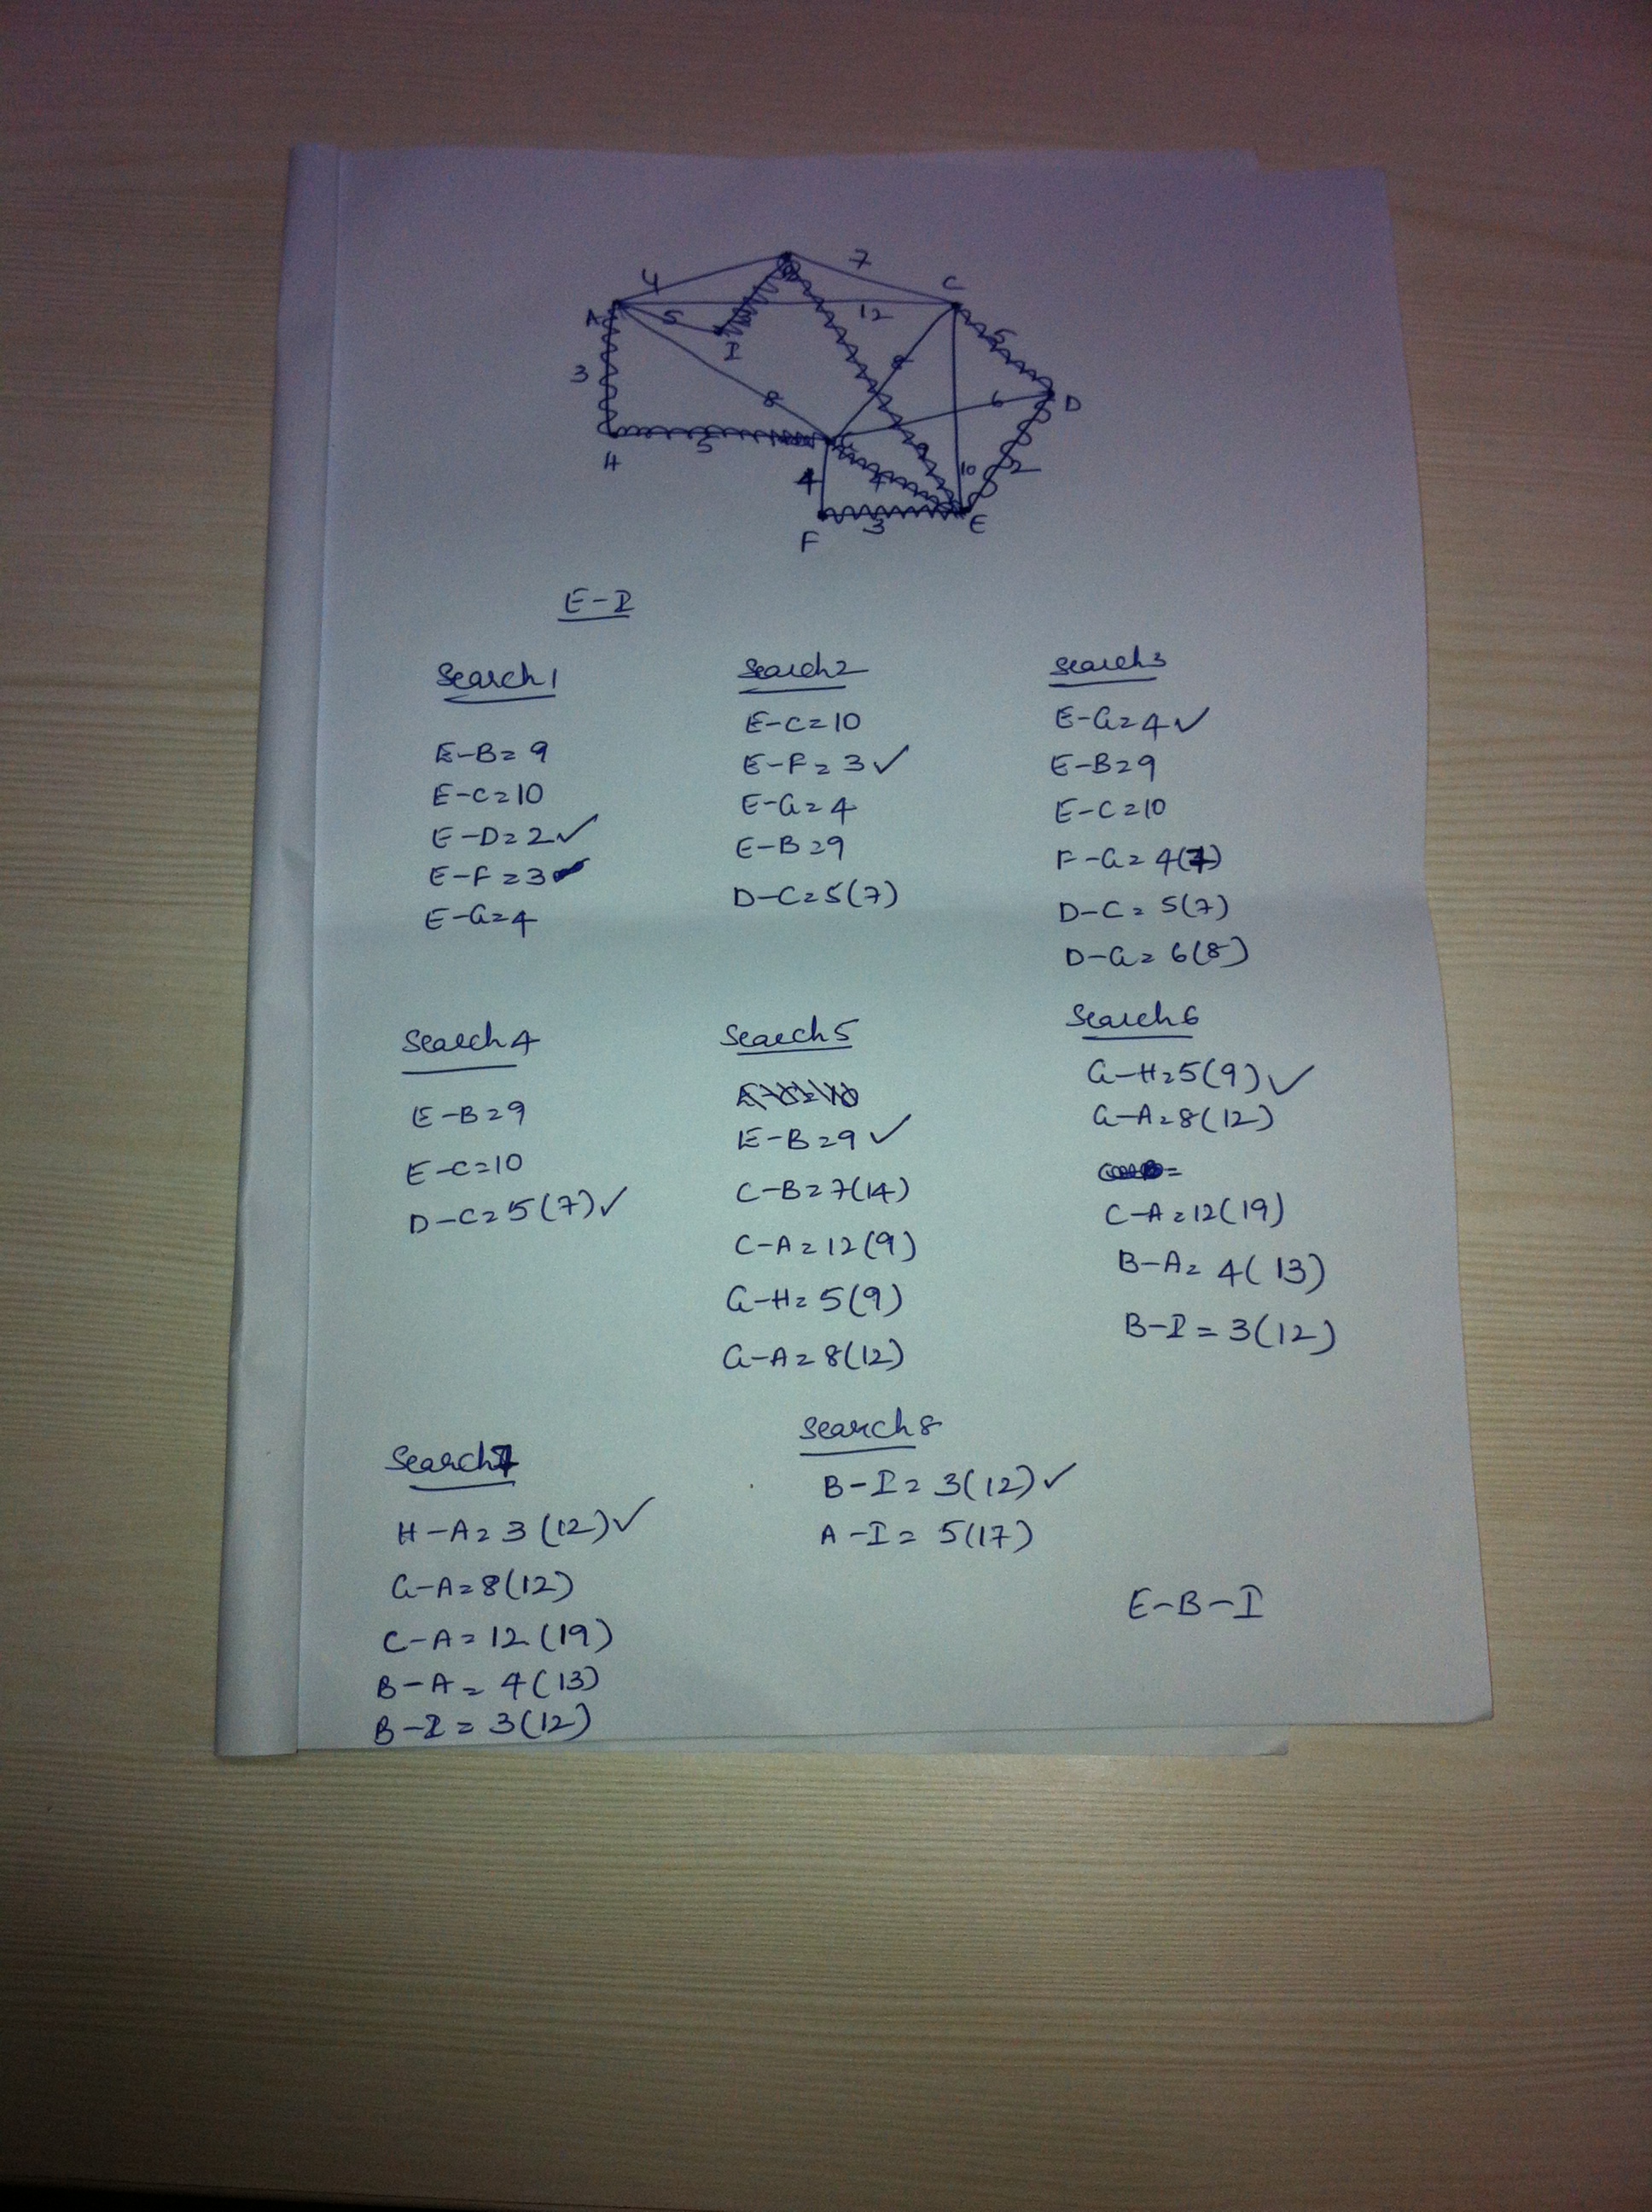 4
7
C
A
5
3
12
5
I
3
8
8
6
D
5
9
10
2
H
4
4
3
E
F
E-I
Search 1
E-B=9
E-C=10
E-D=2✓
E-F=3
E-G=4
Search 2
E-C=10
E-F=3✓
E-G=4
E-B=9
D-C=5(7)
Search 3
E-G=4✓
E-B=9
E-C=10
F-G=4(7)
D-C=5(7)
D-G=6(8)
Search 4
E-B=9
E-C=10
D-C=5(7)✓
Search 5
E-B=9✓
C-B=7(14)
C-A=12(9)
G-H=5(9)
G-A=8(12)
Search 6
G-H=5(9)✓
G-A=8(12)
C-A=12(19)
B-A=4(13)
B-I=3(12)
Search 7
H-A=3(12)✓
G-A=8(12)
C-A=12(19)
B-A=4(13)
B-I=3(12)
Search 8
B-I=3(12)✓
A-I=5(17)
E-B-I